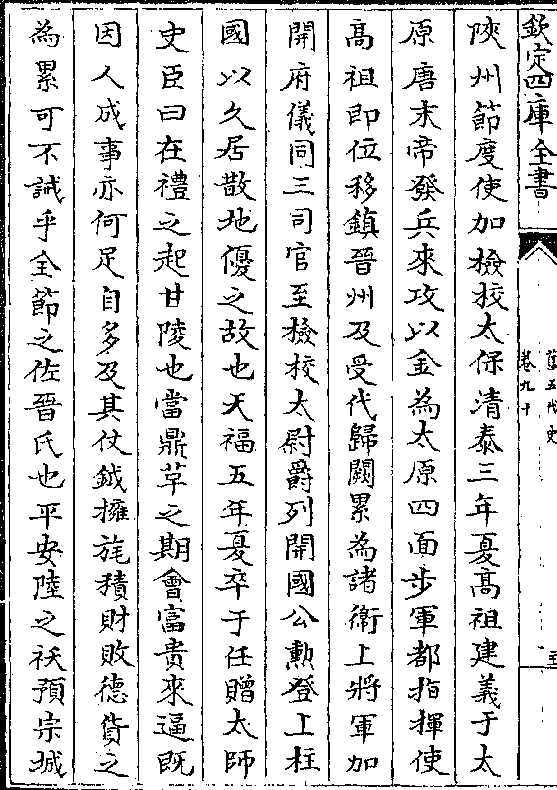 欽定四庫全書
舊五代史
卷九十
陝州節度使加檢校太保清泰三年夏高祖建義于太
原唐末帝發兵來攻以金為太原四面步軍都指揮使
高祖即位移鎮晉州及受代歸闕累為諸衛上將軍加
開府儀同三司官至檢校太尉爵列開國公勳登上柱
國以久居散地優之故也天福五年夏卒于任贈太師
史臣曰在禮之起甘陵也當鼎革之期會富貴來逼既
因人成事亦何足自多及其仗鉞擁旄積財敗德貨之
為累可不誡乎全節之佐晉氏也平安陸之祅預宗城